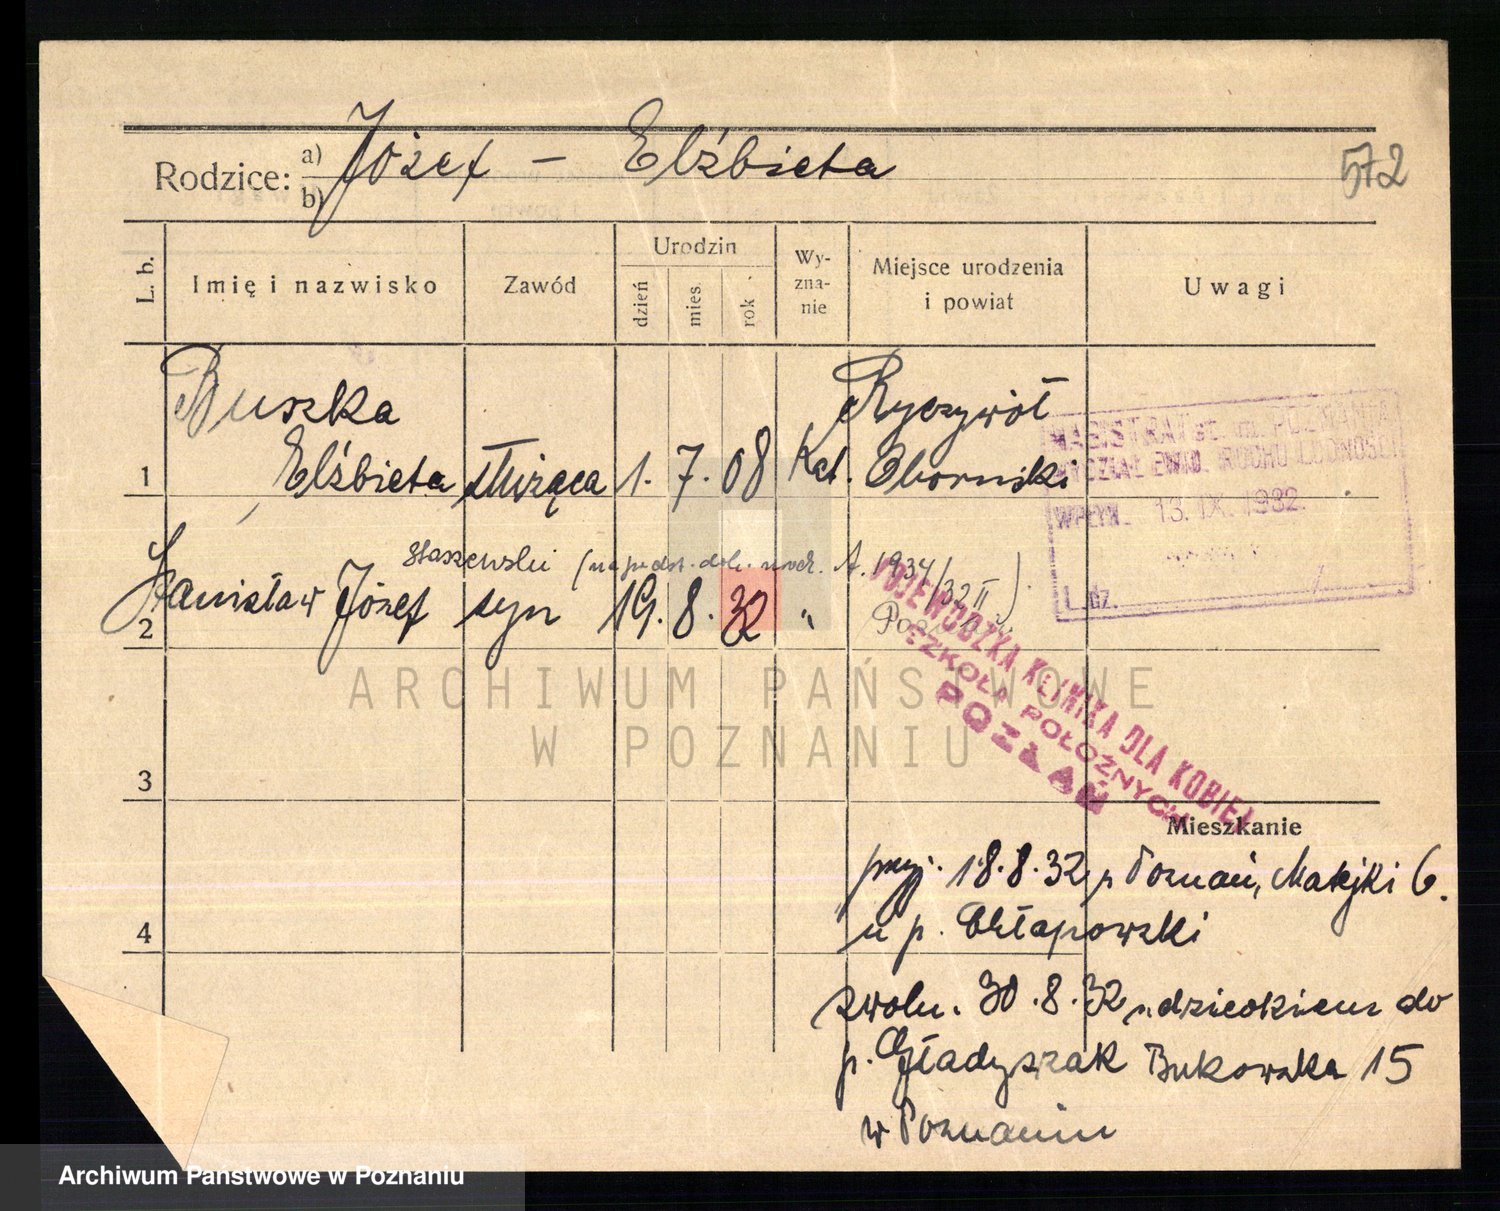 572
Rodzice: a) b) Józef - Elżbieta
L. b. Imię i nazwisko Zawód Urodzin dzień mies. rok Wy-zna-nie Miejsce urodzenia i powiat Uwagi
Buszka Ryczywół
1 Elżbieta służąca 1. 7. 08 Kat. Oborniki
MAGISTRAT st. m. POZNANIA
WYDZIAŁ EWID. RUCHU LUDNOŚCI
WPŁYN. 13. IX. 1932.
L. dz.
Staszewski (na podst. dok. A. 1934/32 II)
2 Stanisław Józef syn 19. 8. 32 "
WOJEWÓDZKA KLINIKA DLA KOBIET
SZKOŁA POŁOŻNYCH
POZNAŃ
ARCHIWUM PAŃSTWOWE
W POZNANIU
3
Mieszkanie
przyj. 18.8.32 z Poznań, Matejki 6.
4 u p. Chłapowski
zwoln. 30.8.32 z dzieckiem do
p. Gładyszak Bukowska 15
w Poznaniu
Archiwum Państwowe w Poznaniu